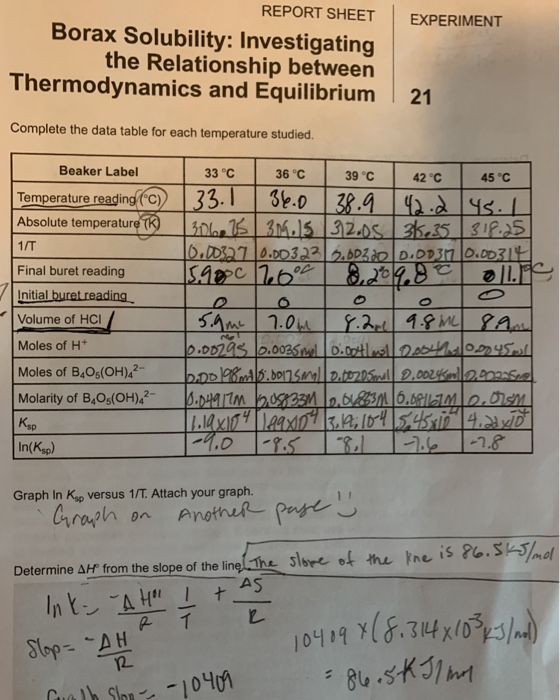 REPORT SHEET
EXPERIMENT
Borax Solubility: Investigating
the Relationship between
Thermodynamics and Equilibrium
21
Complete the data table for each temperature studied.
Beaker Label 33 °C 36 °C 39 °C 42 °C 45 °C
Temperature reading (°C) 33.1 36.0 38.9 42.2 45.1
Absolute temperature (K) 306.25 309.15 312.05 315.35 318.25
1/T 0.00327 0.00323 0.00320 0.00317 0.00314
Final buret reading 7.0 8.2 9.8
Initial buret reading 0 0 0 0 0
Volume of HCl 5.9 mL 7.0 8.2 mL 9.8 mL 8.9
Moles of H⁺ 0.00295 0.0035 mol 0.0041 mol 0.0045 mol
Moles of B₄O₅(OH)₄²⁻ 0.00175 mol 0.00205 mol 0.00245 mol
Molarity of B₄O₅(OH)₄²⁻ 0.04917M
Ksp 1.19x10⁴ 1.99x10⁴ 5.45x10⁴
ln(Ksp) -9.0 -8.5 -8.1 -7.6 -7.8
Graph ln Ksp versus 1/T. Attach your graph.
Graph on Another page
Determine ΔH° from the slope of the line. The slope of the line is 86.5 kJ/mol
ln k = -ΔH°/R 1/T + ΔS/R
Slop = -ΔH/R
10409 x (8.314 x 10³ kJ/mol)
= 86.5 kJ/mol
Slop = -10409